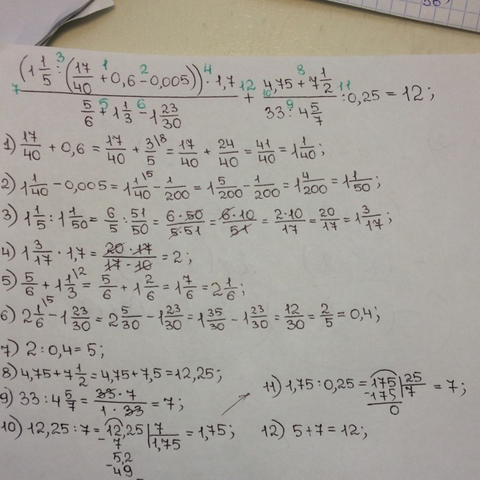 (1 1/5 : (17/40 + 0,6 - 0,005)) · 1,7 / (5/6 + 1 1/3 - 1 23/30) + (4,75 + 7 1/2) / (33 : 4 5/7) : 0,25 = 12;
1) 17/40 + 0,6 = 17/40 + 3/5 \8 = 17/40 + 24/40 = 41/40 = 1 1/40;
2) 1 1/40 - 0,005 = 1 1/40 \5 - 1/200 = 1 5/200 - 1/200 = 1 4/200 = 1 1/50;
3) 1 1/5 : 1 1/50 = 6/5 : 51/50 = 6·50/5·51 = 6·10/51 = 2·10/17 = 20/17 = 1 3/17;
4) 1 3/17 · 1,7 = 20·17/17·10 = 2;
5) 5/6 + 1 1/3 \2 = 5/6 + 1 2/6 = 1 7/6 = 2 1/6;
6) 2 1/6 \5 - 1 23/30 = 2 5/30 - 1 23/30 = 1 35/30 - 1 23/30 = 12/30 = 2/5 = 0,4;
7) 2 : 0,4 = 5;
8) 4,75 + 7 1/2 = 4,75 + 7,5 = 12,25;
9) 33 : 4 5/7 = 33·7/1·33 = 7;
10) 12,25 : 7 = 12,25 | 7 = 1,75;
- 7 1,75
5,2
- 49
11) 1,75 : 0,25 = 175 | 25 = 7;
- 175 7
0
12) 5 + 7 = 12;